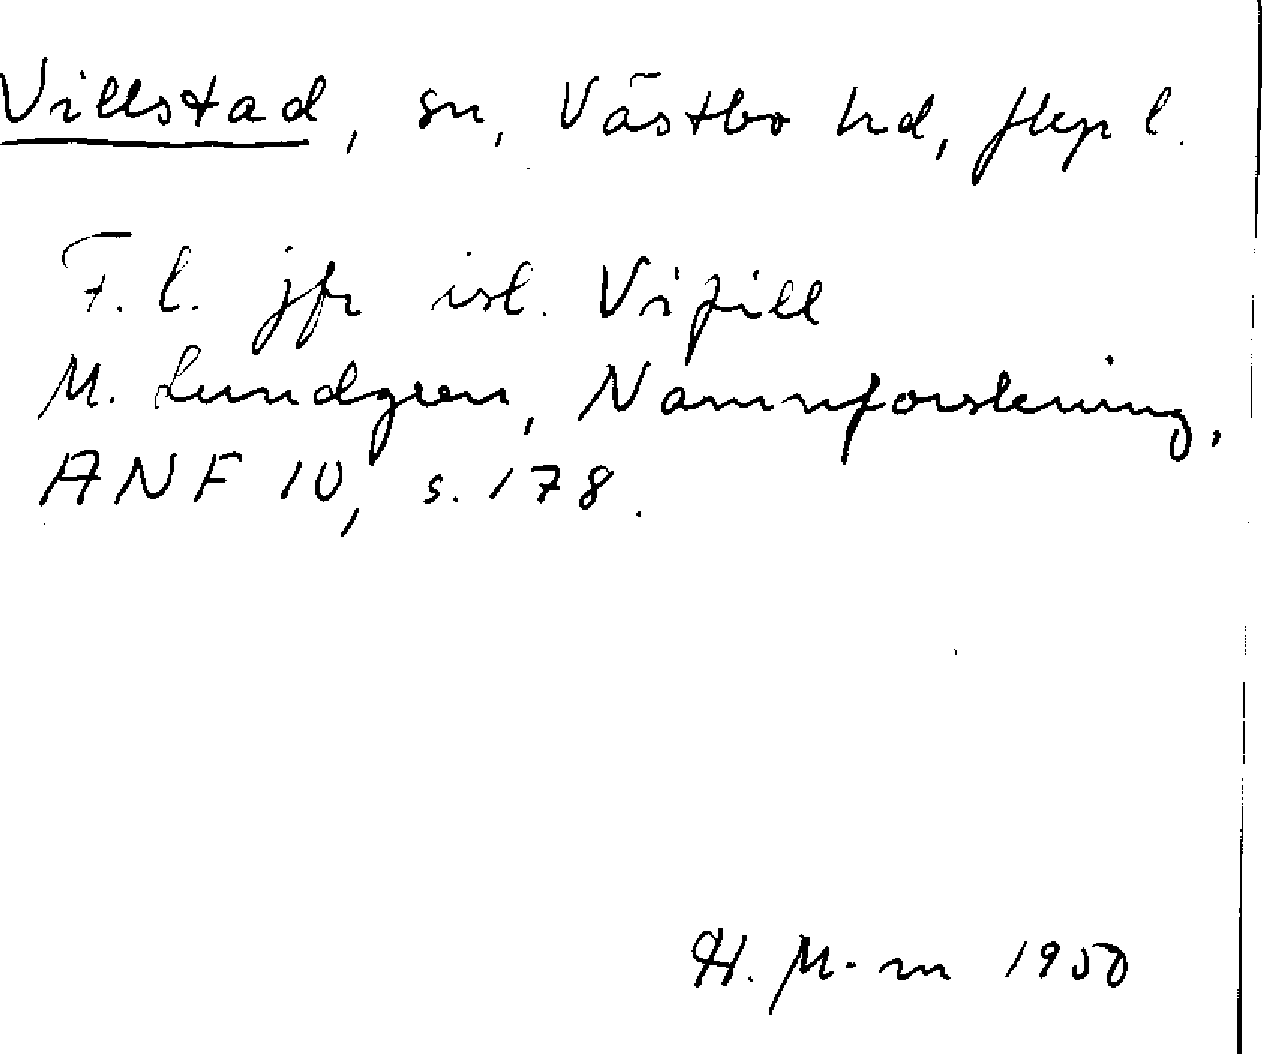 Villstad, sn, Västbo hd, Jkp l.
F. l. jfr isl. Vifill
M. Lundgren, Namnforskning,
ANF 10, s. 178.
H. M-m 1950